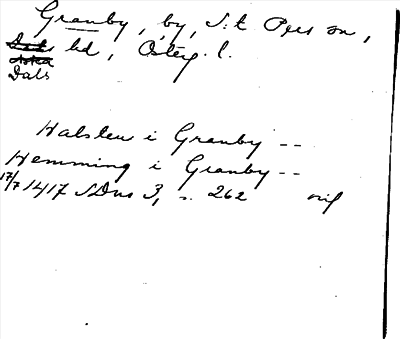 Granby, by, S:t Pers sn,
Dals hd, Östg. l.
Dals
Halsten i Granby --
Hemming i Granby --
17/7 1417 SDns 3, s. 262 orig